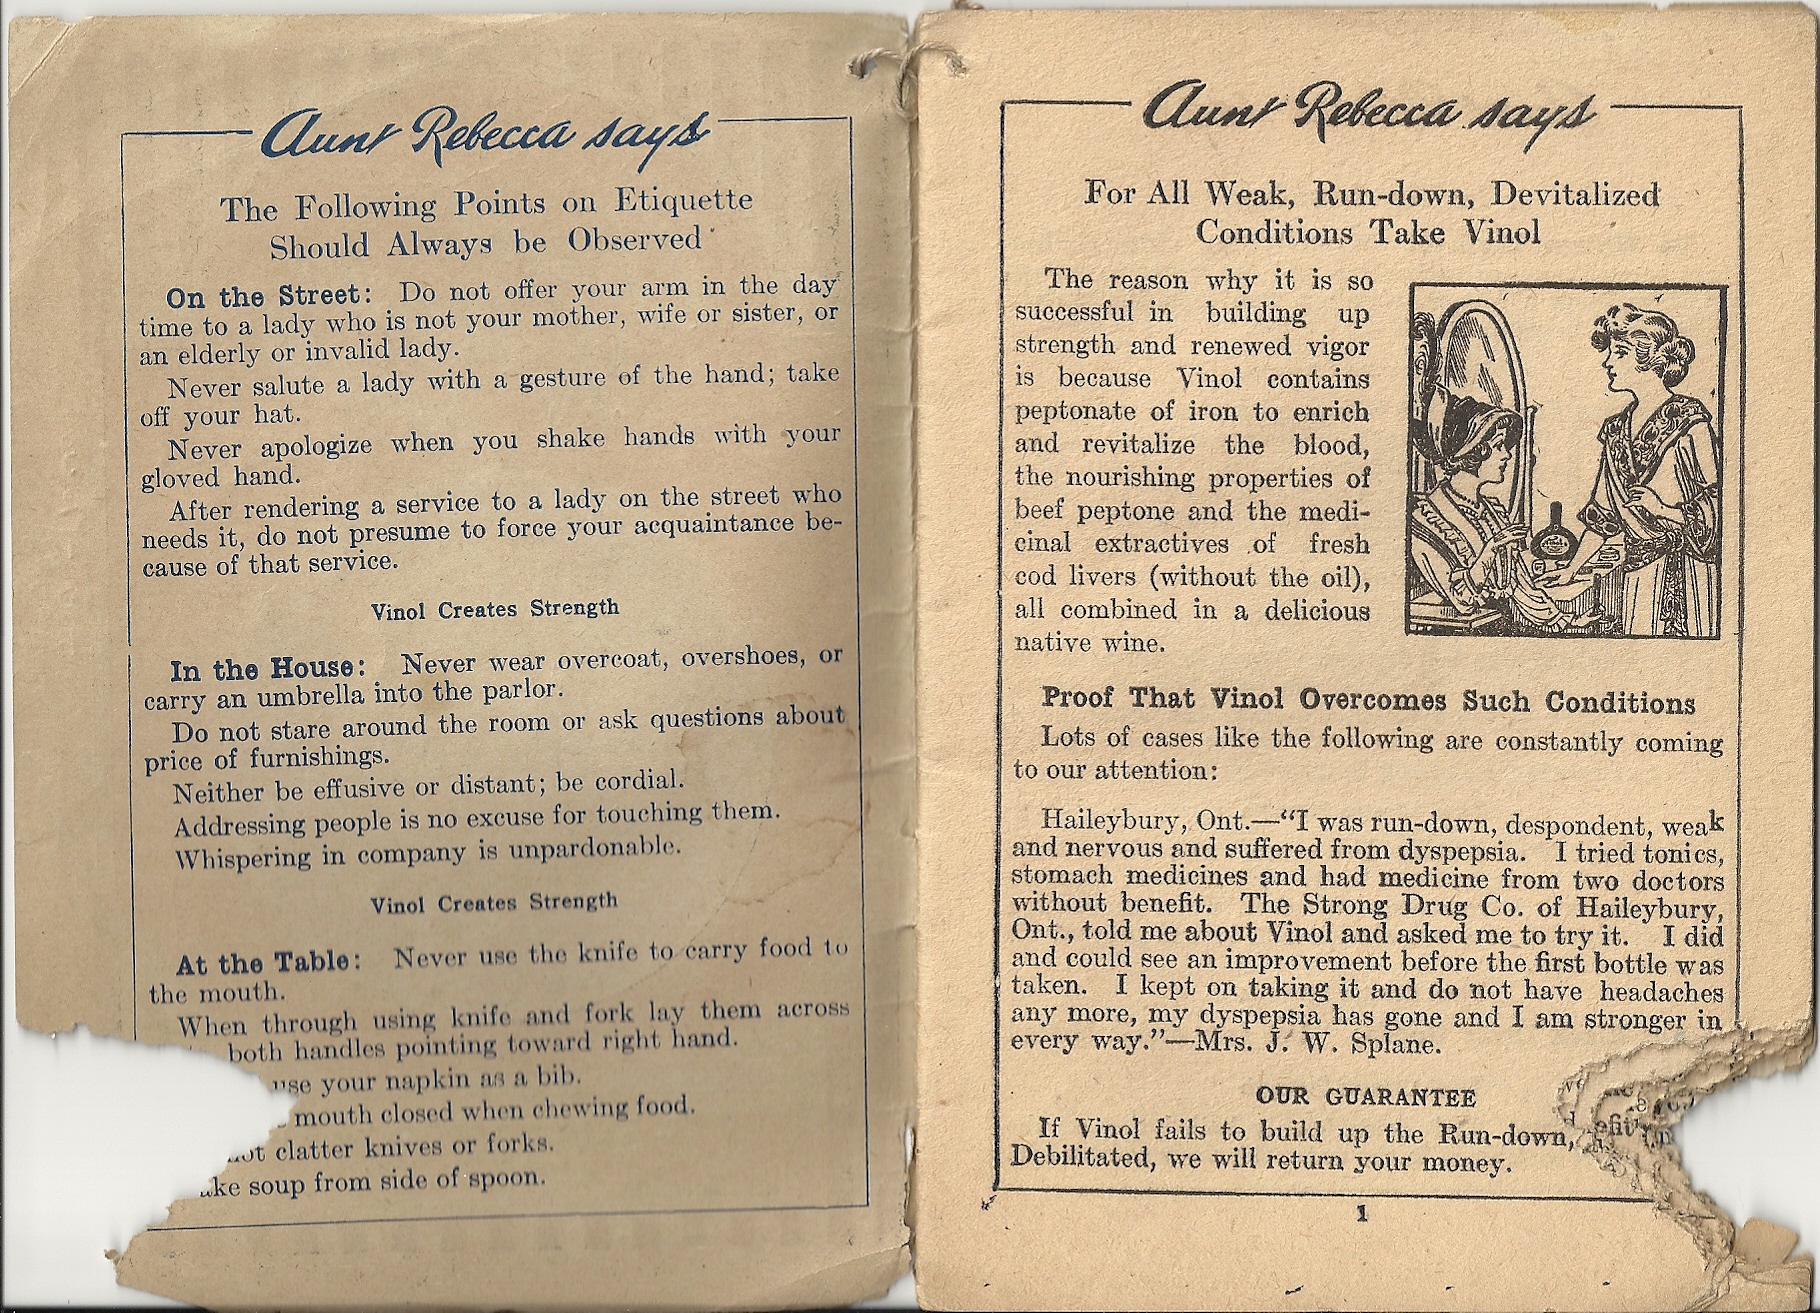 Aunt Rebecca says
The Following Points on Etiquette
Should Always be Observed
On the Street: Do not offer your arm in the day
time to a lady who is not your mother, wife or sister, or
an elderly or invalid lady.
Never salute a lady with a gesture of the hand; take
off your hat.
Never apologize when you shake hands with your
gloved hand.
After rendering a service to a lady on the street who
needs it, do not presume to force your acquaintance be-
cause of that service.
Vinol Creates Strength
In the House: Never wear overcoat, overshoes, or
carry an umbrella into the parlor.
Do not stare around the room or ask questions about
price of furnishings.
Neither be effusive or distant; be cordial.
Addressing people is no excuse for touching them.
Whispering in company is unpardonable.
Vinol Creates Strength
At the Table: Never use the knife to carry food to
the mouth.
When through using knife and fork lay them across
both handles pointing toward right hand.
use your napkin as a bib.
mouth closed when chewing food.
not clatter knives or forks.
ake soup from side of spoon.
Aunt Rebecca says
For All Weak, Run-down, Devitalized
Conditions Take Vinol
The reason why it is so
successful in building up
strength and renewed vigor
is because Vinol contains
peptonate of iron to enrich
and revitalize the blood,
the nourishing properties of
beef peptone and the medi-
cinal extractives of fresh
cod livers (without the oil),
all combined in a delicious
native wine.
Proof That Vinol Overcomes Such Conditions
Lots of cases like the following are constantly coming
to our attention:
Haileybury, Ont.—“I was run-down, despondent, weak
and nervous and suffered from dyspepsia. I tried tonics,
stomach medicines and had medicine from two doctors
without benefit. The Strong Drug Co. of Haileybury,
Ont., told me about Vinol and asked me to try it. I did
and could see an improvement before the first bottle was
taken. I kept on taking it and do not have headaches
any more, my dyspepsia has gone and I am stronger in
every way.”—Mrs. J. W. Splane.
OUR GUARANTEE
If Vinol fails to build up the Run-down,
Debilitated, we will return your money.
1